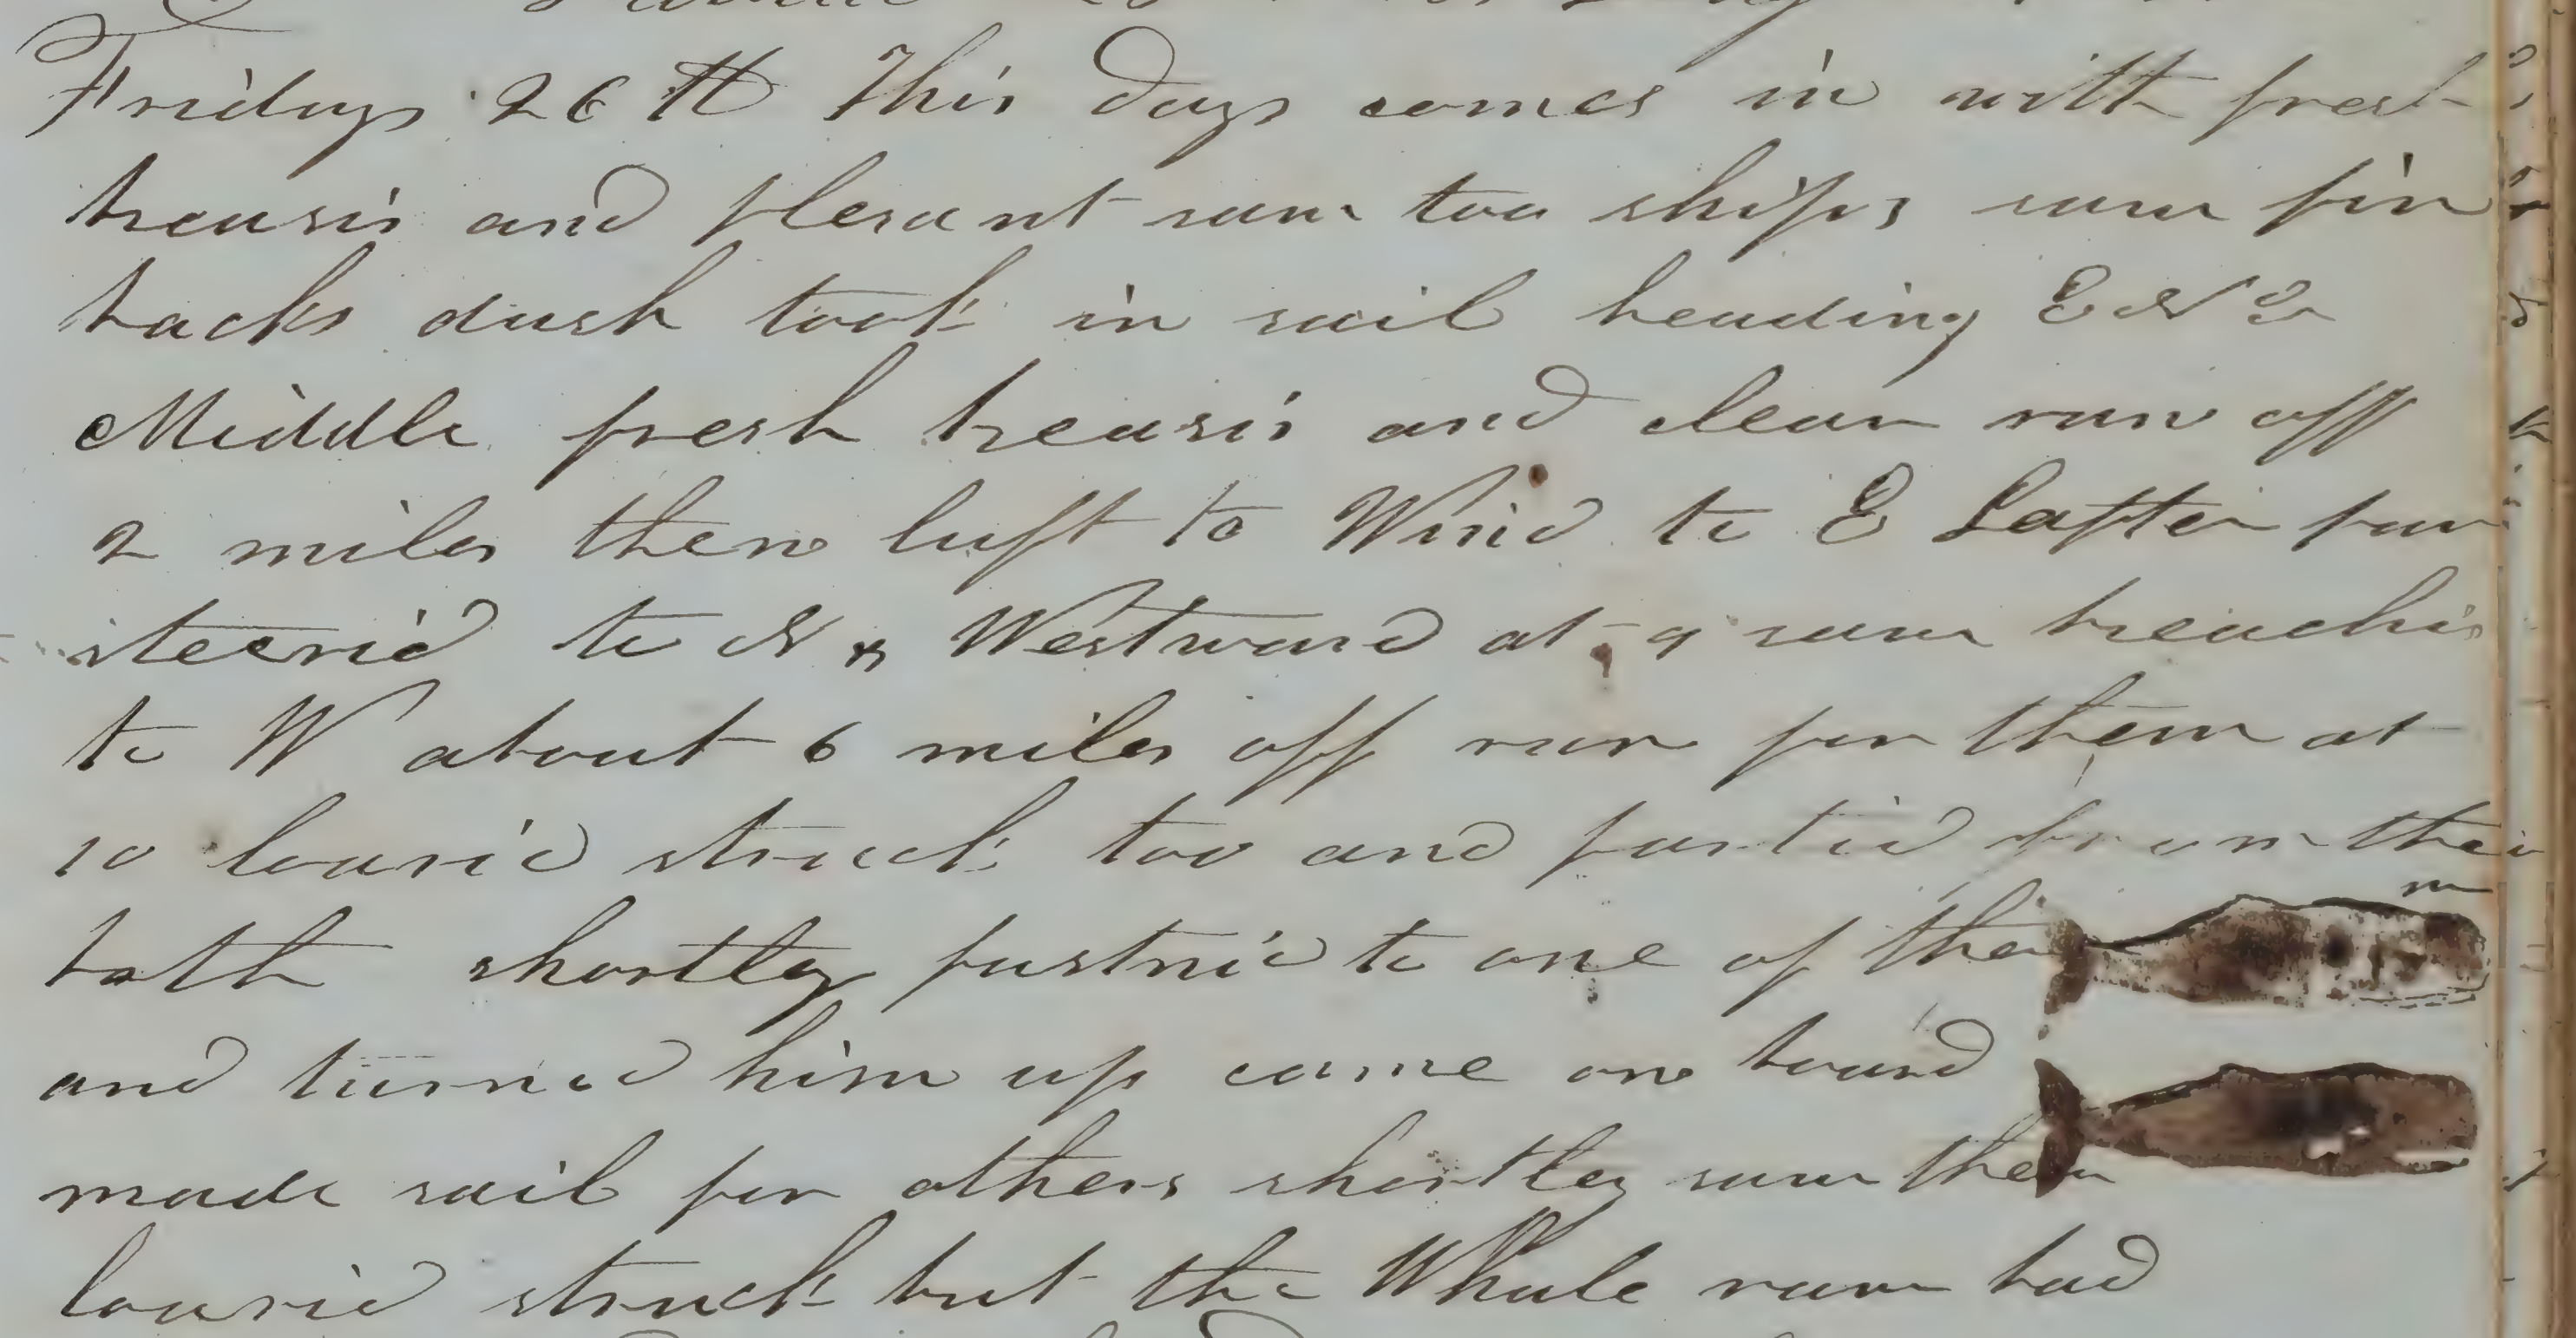 Fridays 26th This days comes in with fresh
breasis and plesant saw too ships saw fin
backs dusk took in sail heading E N E
Middle fresh breasis and clear run off
2 miles then luft to Wind to E Latter par
steerid to N & Westward at 9 saw breachis
to W about 6 miles off run for them at
10 lowrid struck too and partid from them
both shortley fastnid to one of them
and turnid him up came on board
made sail for others shortley saw them
lowrid struck but the Whale ran bad